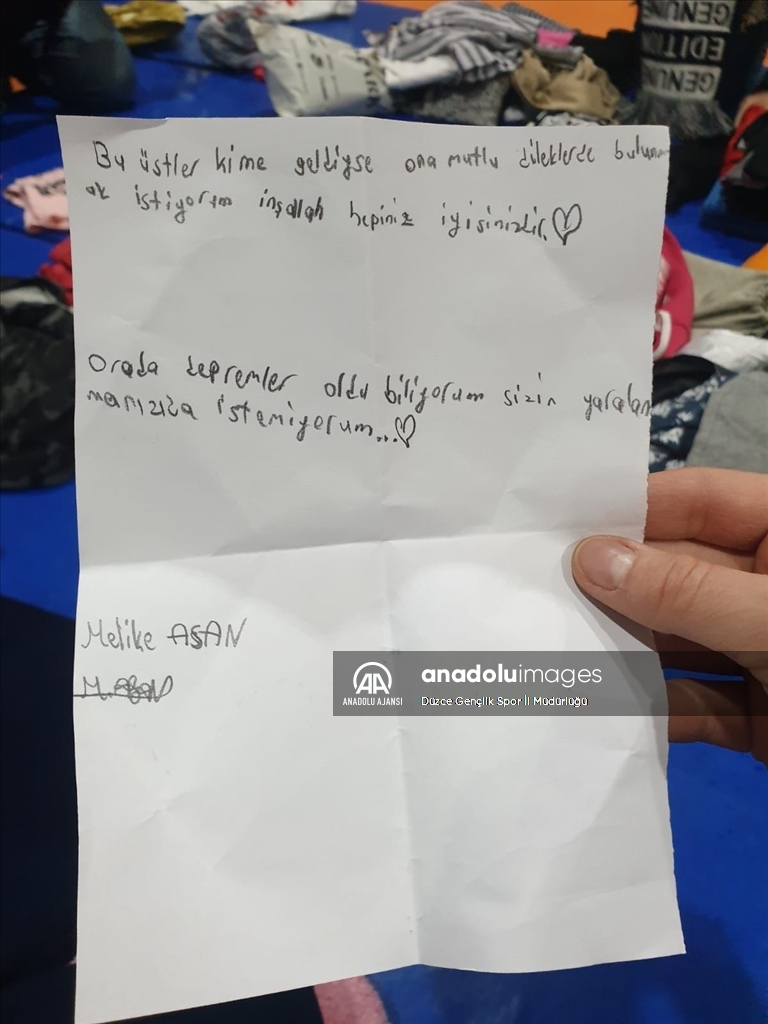 GENUINE
EDITION
GENUINE
Bu üstler kime geldiyse ona mutlu dileklerde bulunm
ak istiyorum inşallah hepiniz iyisinizdir.
Orada depremler oldu biliyorum sizin yaralan
manızıda istemiyorum...
Melike ASAN
AA
ANADOLU AJANSI
anadoluimages
Düzce Gençlik Spor İl Müdürlüğü